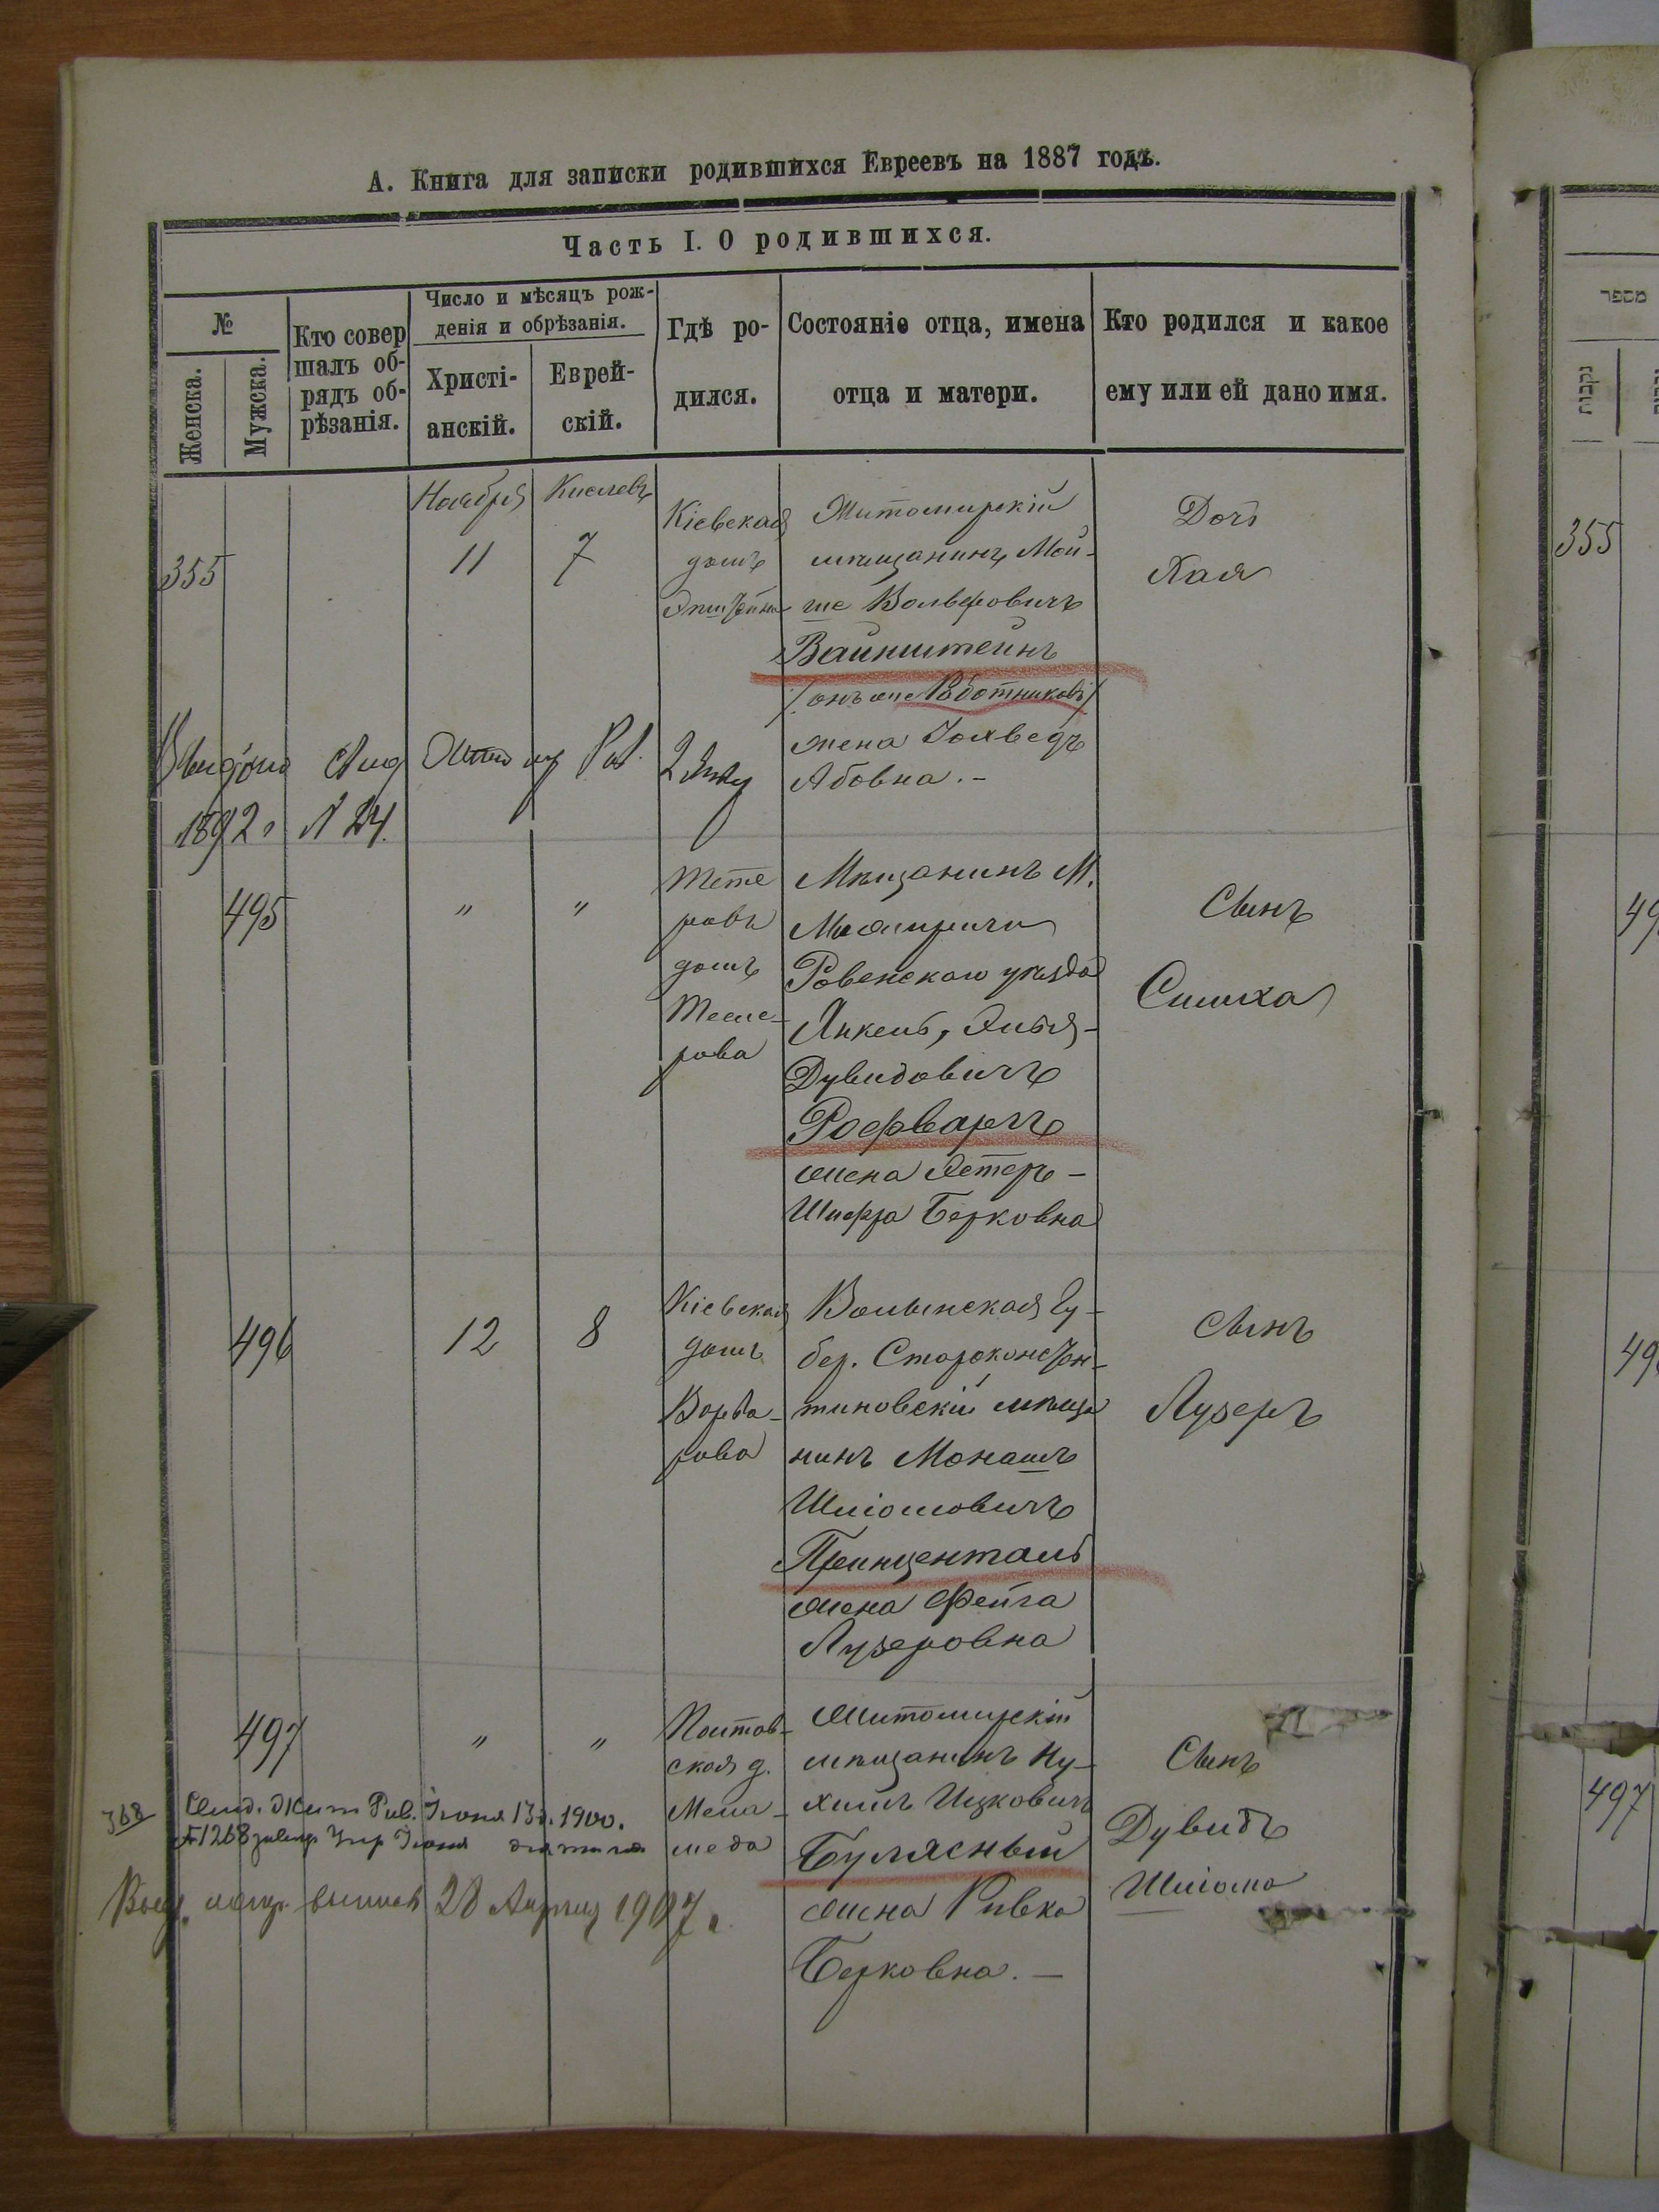 А. Книга для записки родившихся Евреевъ на 1887 годъ.
Часть I. О родившихся.
№
Женска.
Мужска.
Кто совер
шалъ об-
рядъ об-
рѣзанія.
Число и мѣсяцъ рож-
денія и обрѣзанія.
Христі-
анскій.
Еврей-
скій.
Гдѣ ро-
дился.
Состояніе отца, имена
отца и матери.
Кто родился и какое
ему или ей дано имя.
355
Ноября
11
Кислевъ
7
Кіевская
домъ
Житомирскій
мѣщанинъ Мой-
ше Вольфовичъ
Вайнштейнъ
/онъ же Работниковъ/
жена Іохведъ
Абовна.-
Дочь
Хая
1892г №24.
495
"
"
Тете
ровъ
домъ
Мѣщанинъ М.
Межиричи
Ровенскаго уѣзда
Янкель, Элья-
Дувидовичъ
Росфваргъ
жена Эстеръ -
Шифра Берковна
Сынъ
Симха
496
12
8
Кіевская
домъ
Варва-
рова
Волынская Гу-
бер. Староконстан-
тиновскій мѣща
нинъ Монашъ
Шліомовичъ
Принценталь
жена Фейга
Лузеровна
Сынъ
Лузеръ
497
"
"
ская д.
Мела-
меда
Житомирскій
мѣщанинъ Ну-
химъ Ицковичъ
Булясный
жена Ривка
Берковна.-
Сынъ
Дувидъ
Шліома
368
Свид. Жит Рав. Іюня 13д. 1900.
№1268
28 1907 г.
מספר
נקבות
355
49
49
497